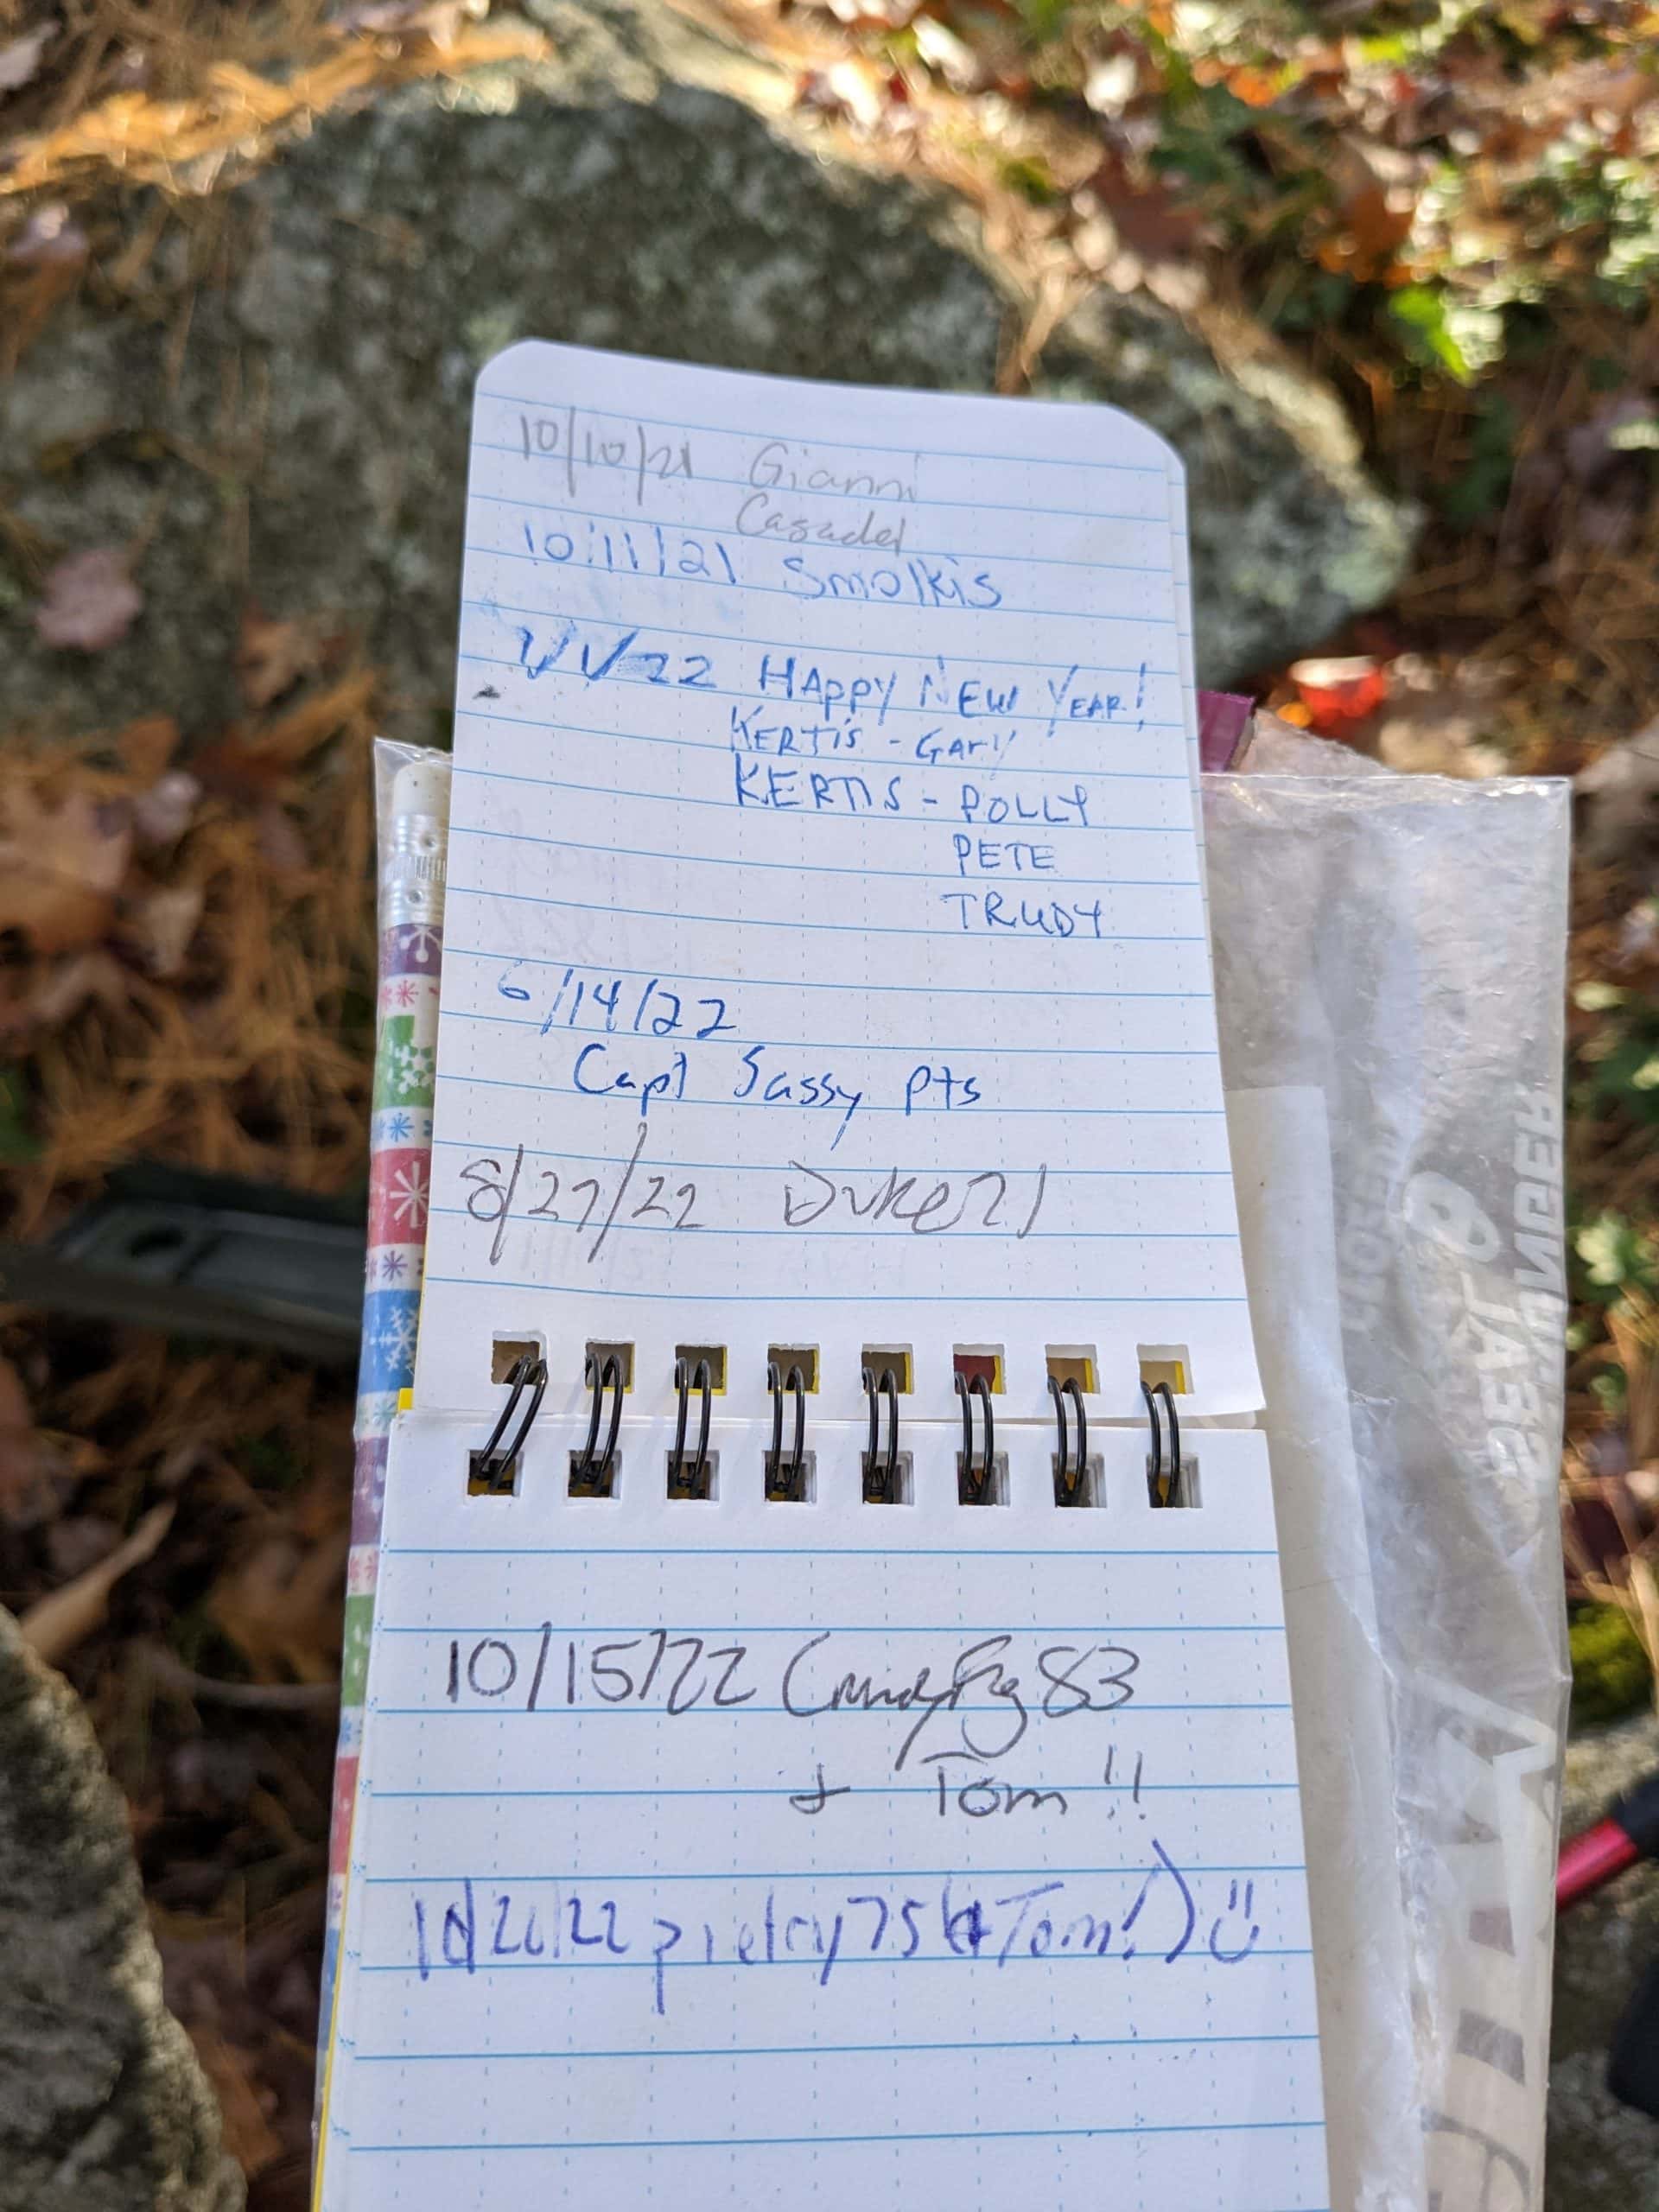 10/10/21 Gianni
Casadel
10/11/21 Smolkis
1/1/22 HAppy NEW YEAR!
KERTIS - GARY
KERTIS - POLLY
PETE
TRUDY
6/14/22
Capt Sassy Pts
8/27/22 Duke71
10/15/22 83
+ Tom!!
22 75 (+Tom!) :)
SEAL